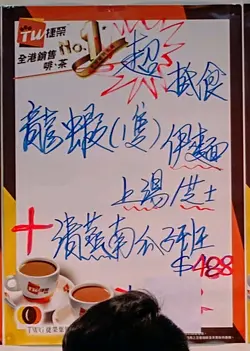 TW 捷榮
全港銷售 No.1
啡.茶
超抵食
龍蝦(1隻)伊麵
上湯/芝士
+ 清蒸南瓜斑
$488